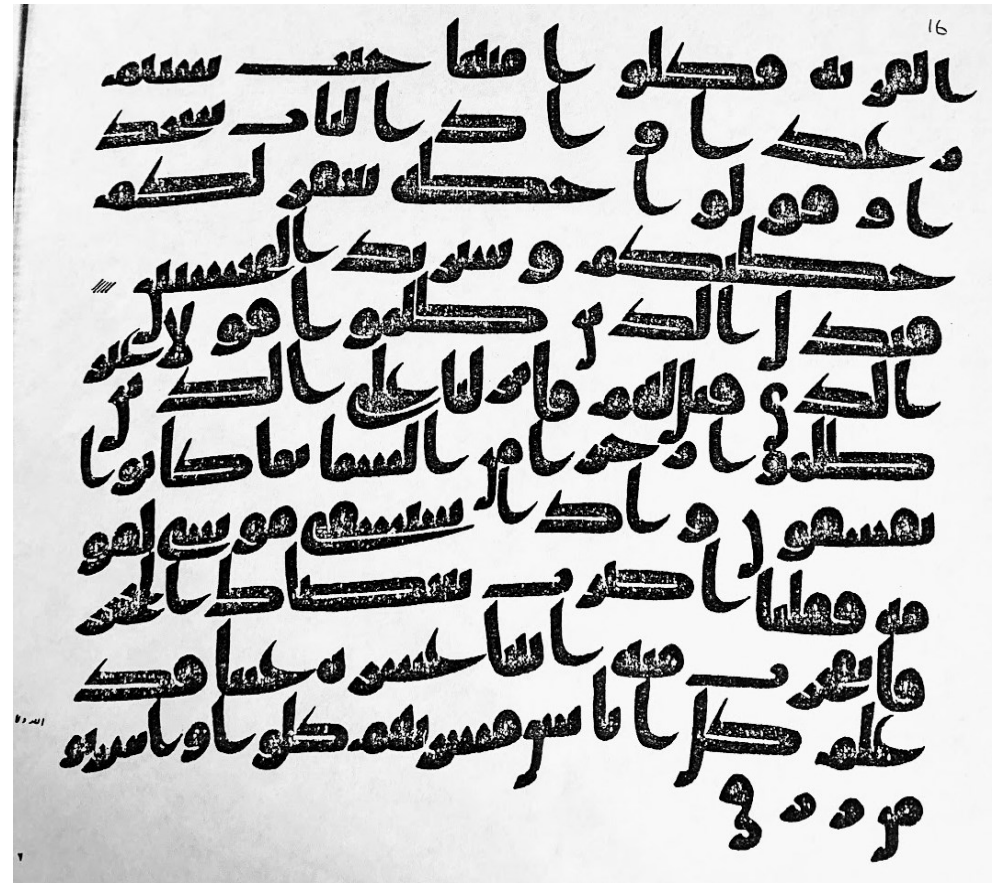 16
القرية فكلوا منها حيث شئتم
رغدا واد الباب سجد
ا وقولوا حطة نغفر لكم
خطيكم وسنزيد المحسنين
فبدل الذين ظلموا قولا غير
الذي قيل لهم فانزلنا على الذين
ظلموا رجزا من السما بما كانوا
يفسقون واذ استسقى موسى لقو
مه فقلنا اضرب بعصاك الحجر
فانفجرت منه اثنتا عشرة عينا قد
علم كل اناس مشربهم كلوا واشربوا
من رزق